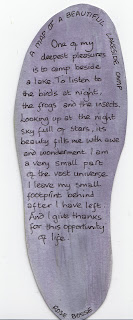 A MAP OF A BEAUTIFUL LAKESIDE CAMP
One of my
deepest pleasures
is to camp beside
a lake. To listen to
the birds at night,
the frogs and the insects.
Looking up at the night
sky full of stars, its
beauty fills me with awe
and wonderment. I am
a very small part
of the vast universe.
I leave my small
footprint behind
after I have left.
And I give thanks
for this opportunity
of life.
ROSE